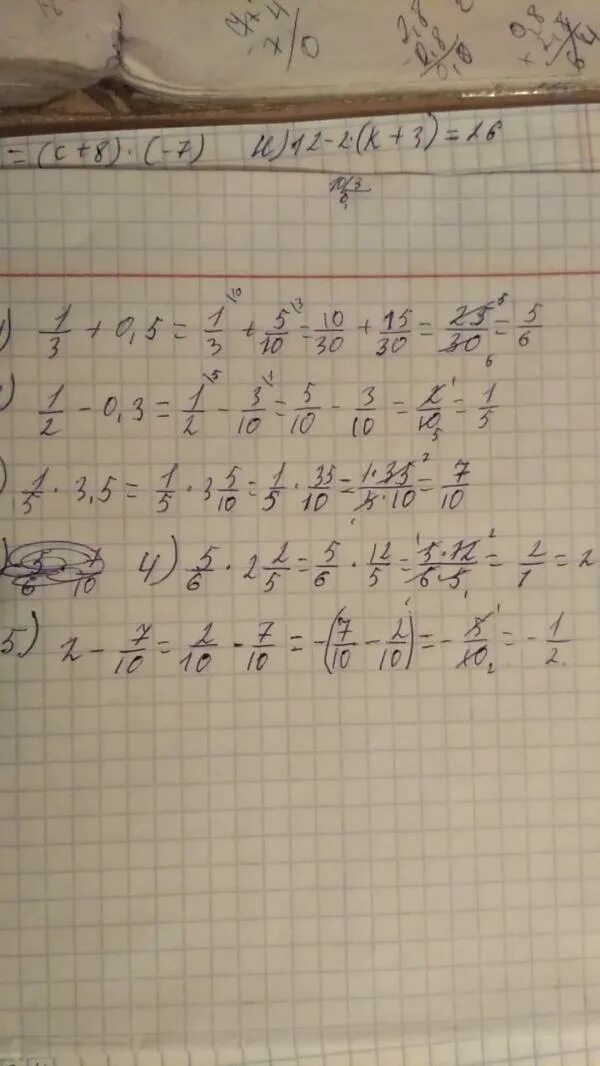 = (x+8)·(-7) и) 12-2·(x+3)=26
1/3 + 0,5 = 1/3 \10 + 5/10 \3 = 10/30 + 15/30 = 25/30 = 5/6
1/2 - 0,3 = 1/2 \5 - 3/10 \1 = 5/10 - 3/10 = 2/10 = 1/5
1/5 · 3,5 = 1/5 · 3 5/10 = 1/5 · 35/10 = 1·35/5·10 = 7/10
4) 5/6 · 2 2/5 = 5/6 · 12/5 = 5·12/6·5 = 2/1 = 2
5) 2 - 7/10 = 2/10 - 7/10 = -(7/10 - 2/10) = - 5/10 = - 1/2